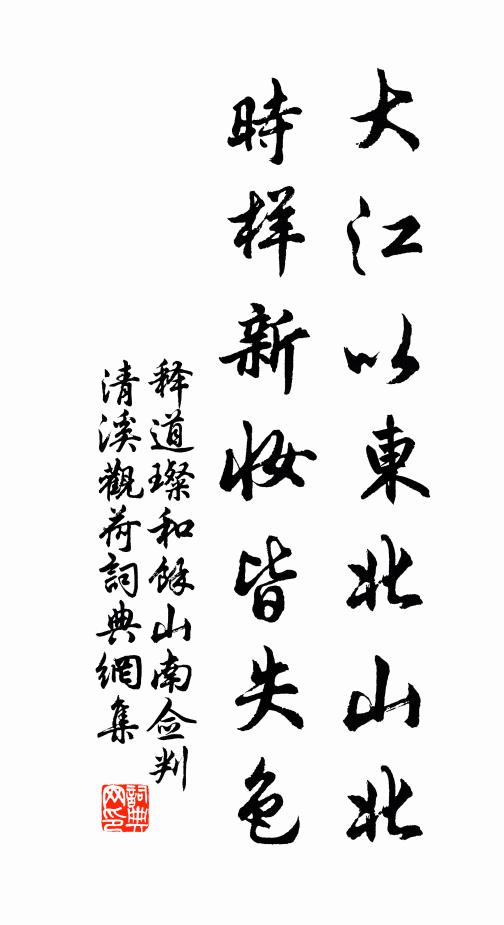 大江以東北山北
時样新妝皆失色
释道璨和餘山南佥判
清溪觀荷詞典網集
詞典网印